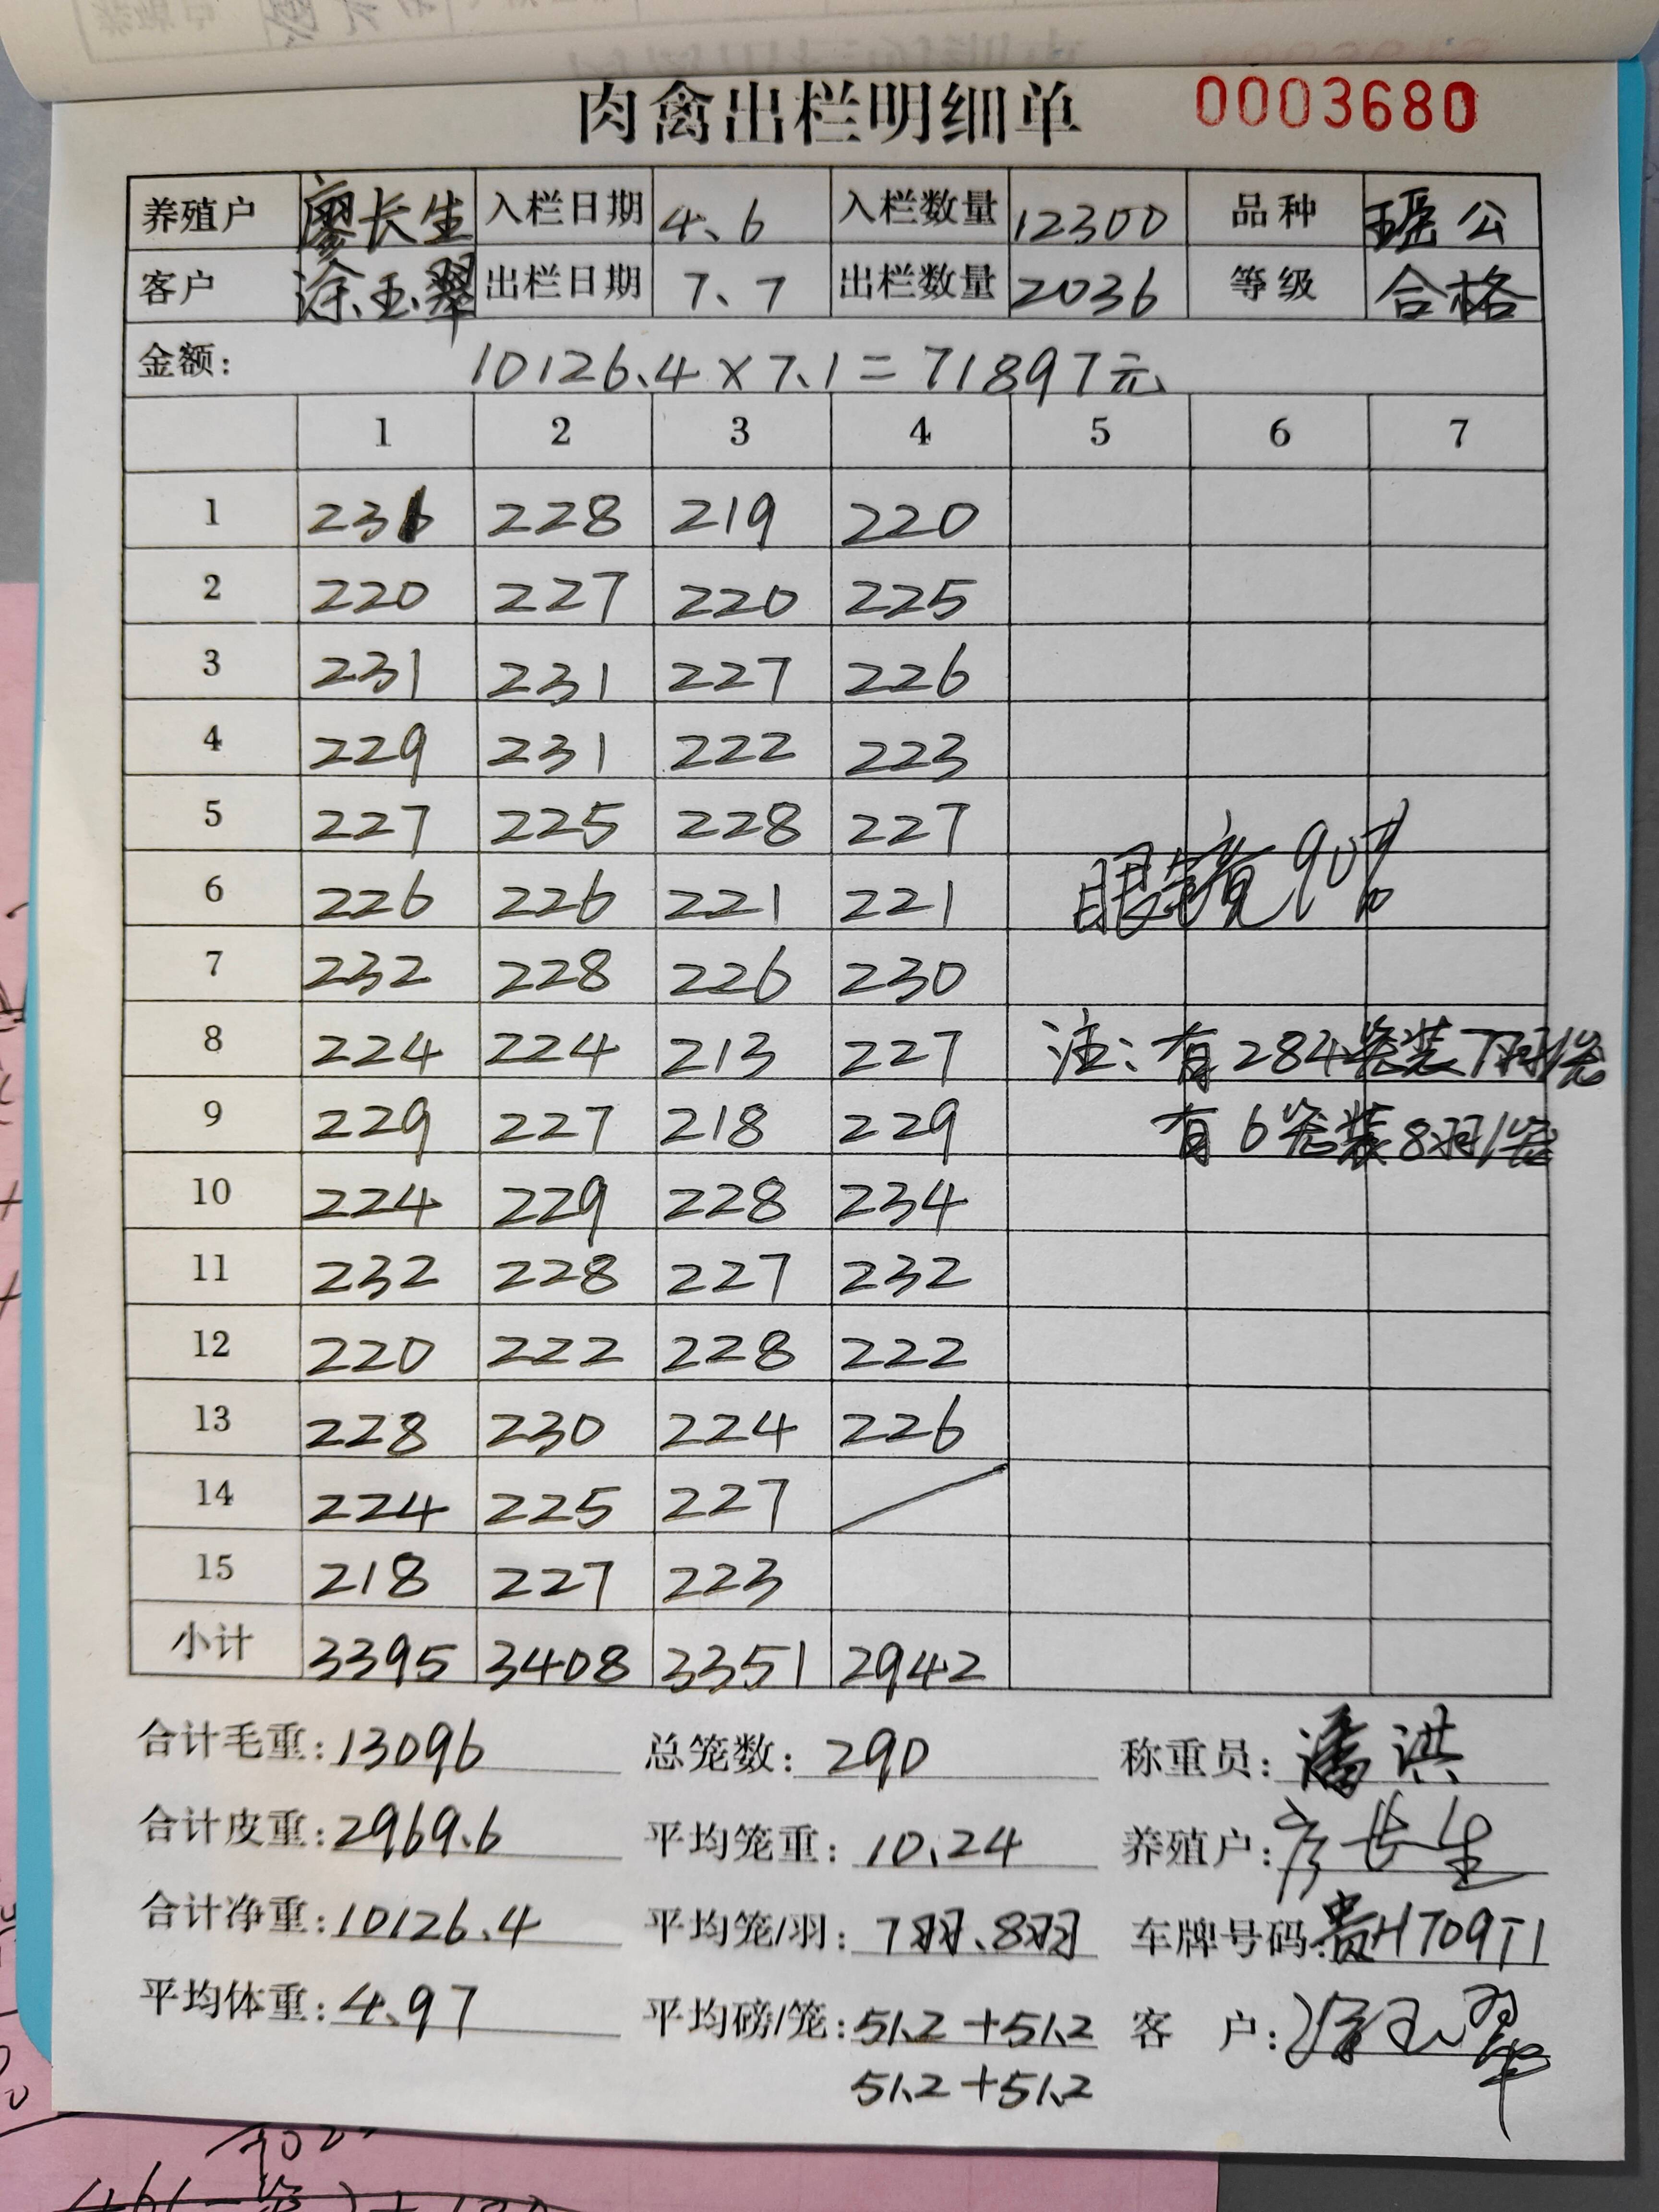 肉禽出栏明细单 0003680
养殖户 廖长生 入栏日期 4、6 入栏数量 12300 品种 瑶公
客户 涂玉翠 出栏日期 7、7 出栏数量 2036 等级 合格
金额: 10126.4×7.1=71897元
1 2 3 4 5 6 7
1 231 228 219 220
2 220 227 220 225
3 231 231 227 226
4 229 231 222 223
5 227 225 228 227
6 226 226 221 221
眼镜90%
7 232 228 226 230
8 224 224 213 227 注:有284笼装7羽/笼
9 229 227 218 229 有6笼装8羽/笼
10 224 229 228 234
11 232 228 227 232
12 220 222 228 222
13 228 230 224 226
14 224 225 227
15 218 227 223
小计 3395 3408 3351 2942
合计毛重:13096 总笼数:290 称重员:潘洪
合计皮重:2969.6 平均笼重:10.24 养殖户:廖长生
合计净重:10126.4 平均笼/羽:7羽、8羽 车牌号码:贵HT09T1
平均体重:4.97 平均磅/笼:51.2+51.2 客 户:涂玉翠
51.2+51.2